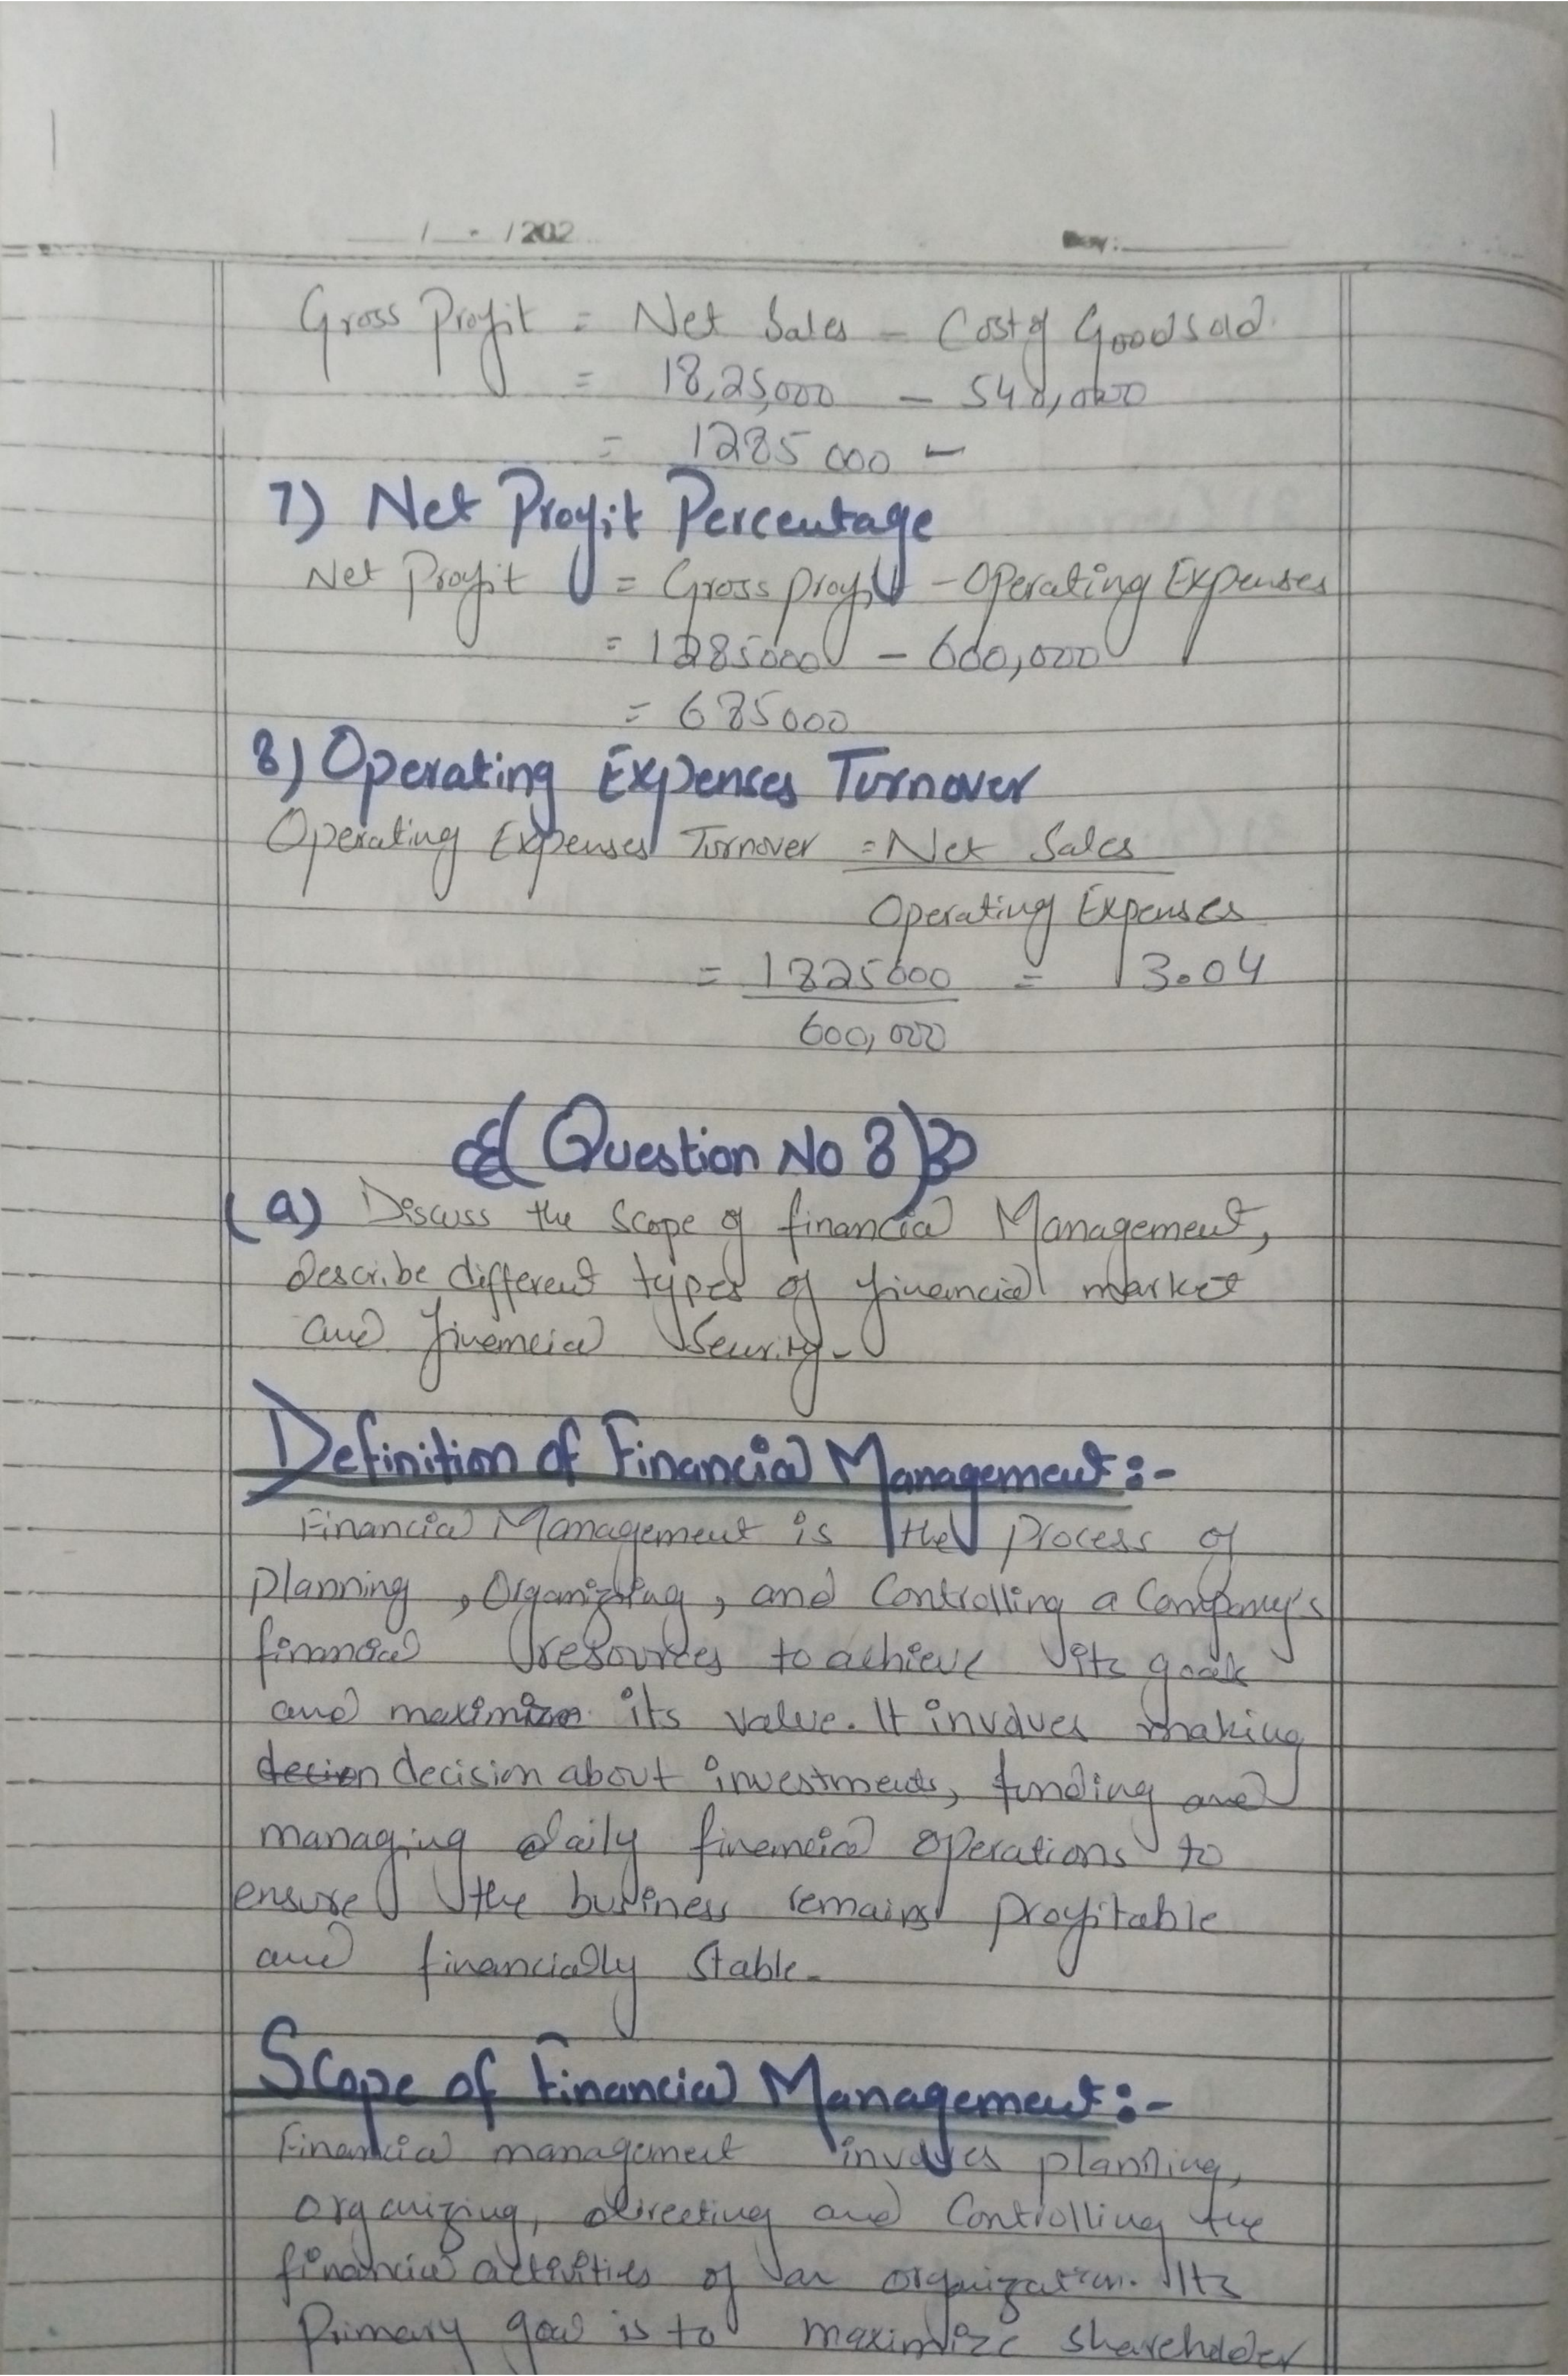 / /202 Day:
Gross Profit = Net Sales - Cost of Good sold.
= 18,25,000 - 540,000
= 1285 000 -
7) Net Profit Percentage
Net Profit = Gross profit - Operating Expenses
= 1285000 - 600,000
= 685000
8) Operating Expenses Turnover
Operating Expenses Turnover = Net Sales
Operating Expenses
= 1825000 = 3.04
600,000
(Question No 8)
(a) Discuss the Scope of financial Management,
describe different types of financial market
and financial Security-
Definition of Financial Management:-
Financial Management is the process of
planning, Organizing, and Controlling a Company's
financial resources to achieve its goals
and maximize its value. It involves making
decision about investments, funding and
managing daily financial operations to
ensure the business remains profitable
and financially stable-
Scope of Financial Management:-
Financial management involves planning,
organizing, directing and Controlling the
financial activities of an organization. Its
Primary goal is to maximize shareholder